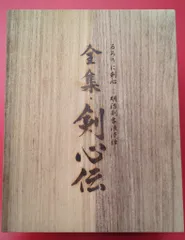 るろうに剣心―明治剣客浪漫譚
全集・剣心伝